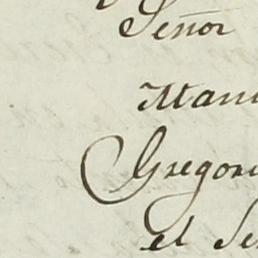 Señor
Man
Gregori
el Se